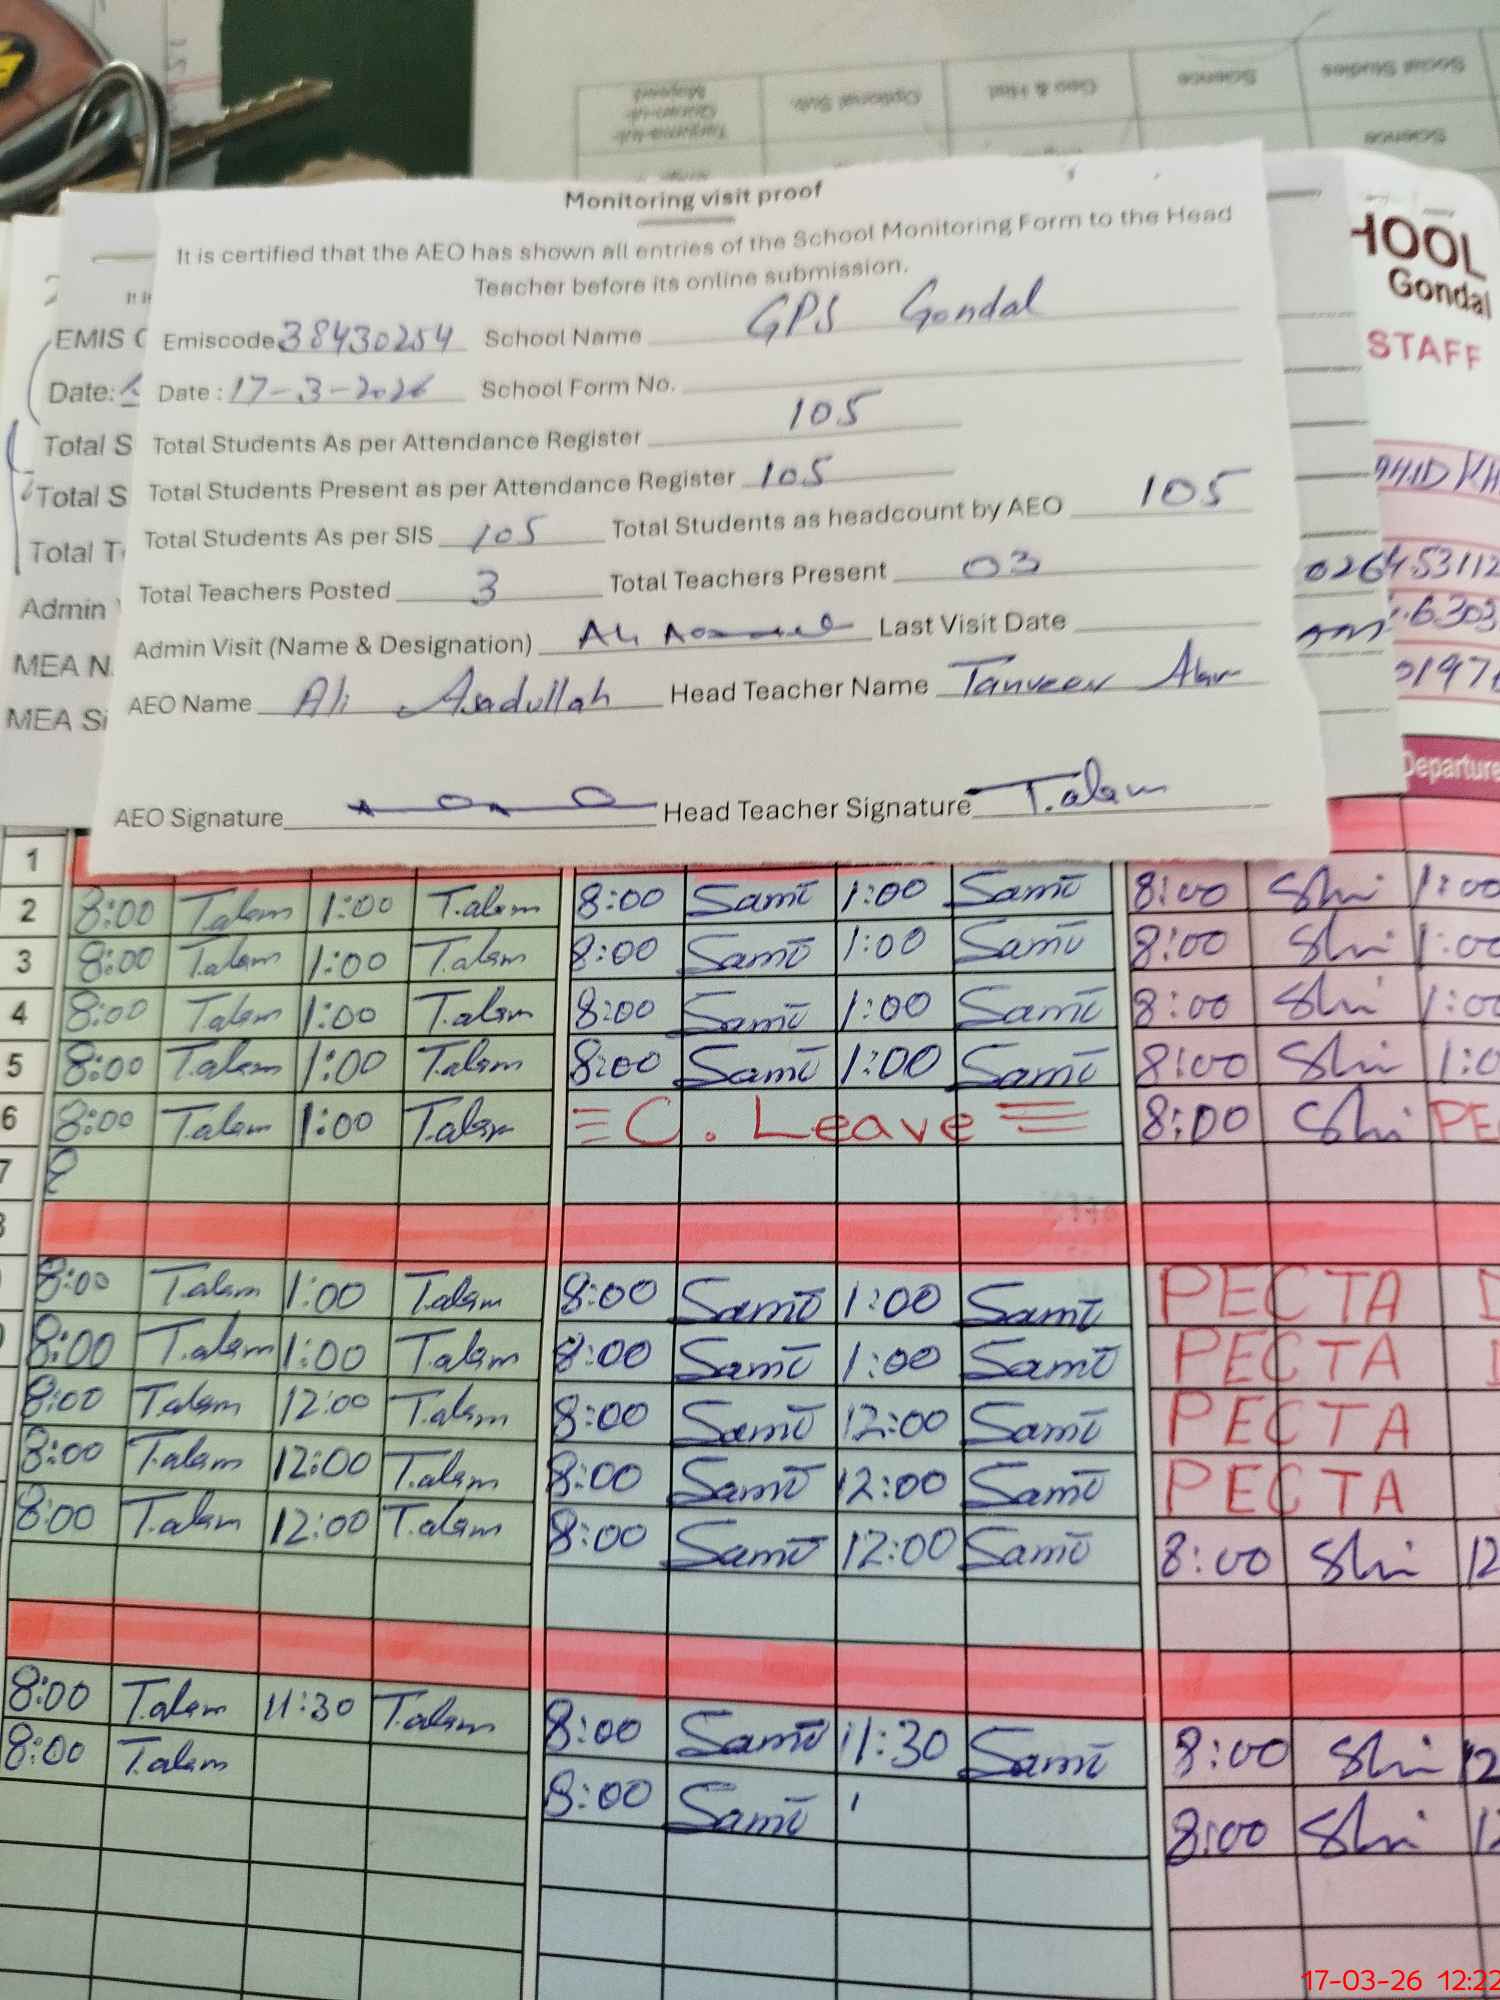 Social Studies
Science
Geo & Hist
Optional Sub.
Tarjuma-tul-
Quran-ul-
Majeed
Science
HOOL
Gondal
STAFF
Monitoring visit proof
It is certified that the AEO has shown all entries of the School Monitoring Form to the Head
Teacher before its online submission.
Emiscode 38430254 School Name GPS Gondal
Date : 17-3-2026 School Form No.
Total Students As per Attendance Register 105
Total Students Present as per Attendance Register 105
Total Students As per SIS 105 Total Students as headcount by AEO 105
Total Teachers Posted 3 Total Teachers Present 03
Admin Visit (Name & Designation) Last Visit Date
AEO Name Ali Asadullah Head Teacher Name Tanveer
AEO Signature Head Teacher Signature T.alam
EMIS C
Date:
Total S
Total S
Total T
Admin
MEA N
MEA Si
026453112
6303
0197
Departure
1
2 8:00 T.alam 1:00 T.alam 8:00 Samī 1:00 Samī 8:00 Shi 1:00
3 8:00 T.alam 1:00 T.alam 8:00 Samī 1:00 Samī 8:00 Shi 1:00
4 8:00 T.alam 1:00 T.alam 8:00 Samī 1:00 Samī 8:00 Shi 1:00
5 8:00 T.alam 1:00 T.alam 8:00 Samī 1:00 Samī 8:00 Shi 1:0
6 8:00 T.alam 1:00 T.alam C. Leave 8:00 Shi PE
7 8
8:00 T.alam 1:00 T.alam 8:00 Samī 1:00 Samī PECTA
8:00 T.alam 1:00 T.alam 8:00 Samī 1:00 Samī PECTA
8:00 T.alam 12:00 T.alam 8:00 Samī 12:00 Samī PECTA
8:00 T.alam 12:00 T.alam 8:00 Samī 12:00 Samī PECTA
8:00 T.alam 12:00 T.alam 8:00 Samī 12:00 Samī 8:00 Shi 12
8:00 T.alam 11:30 T.alam 8:00 Samī 11:30 Samī 8:00 Shi 12
8:00 T.alam 8:00 Samī 8:00 Shi 12
17-03-26 12:22